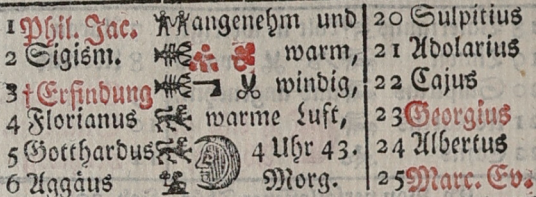 1 Phil. Jac. angenehm und 20 Sulpitius
2 Sigism. warm, 21 Adolarius
3 † Erfindung windig, 22 Cajus
4 Florianus warme Luft, 23 Georgius
5 Gotthardus 4 Uhr 43. 24 Albertus
6 Aggäus Morg. 25 Marc. Ev.